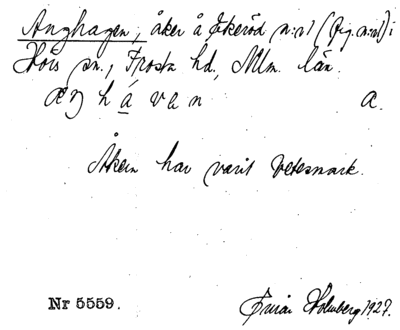 Änghagen, åker å Ekeröd n:o 1 (Frij. n:o 1) i
Hörs sn., Frosta hd., Mlm. län.
æŋ h á v a n a.
Åkern har varit betesmark.
Nr 5559. Ewar Holmberg 1927.